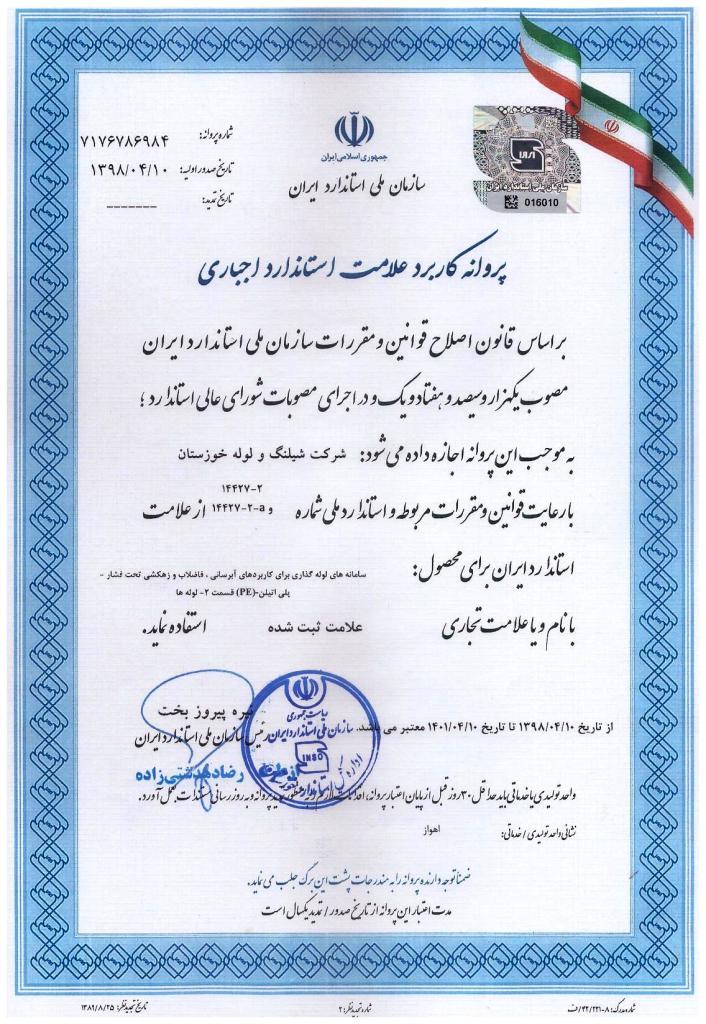 شماره پروانه: ۷۱۷۶۷۸۶۹۸۴
تاریخ صدور اولیه: ۱۳۹۸/۰۴/۱۰
تاریخ تمدید: -------
جمهوری اسلامی ایران
سازمان ملی استاندارد ایران
سازمان ملی استاندارد ایران
016010
پروانه کاربرد علامت استاندارد اجباری
بر اساس قانون اصلاح قوانین و مقررات سازمان ملی استاندارد ایران
مصوب یکهزار و سیصد و هفتاد و یک و در اجرای مصوبات شورای عالی استاندارد ؛
به موجب این پروانه اجازه داده می شود: شرکت شیلنگ و لوله خوزستان
با رعایت قوانین و مقررات مربوطه و استاندارد ملی شماره ۱۴۴۲۷-۲ و ۱۴۴۲۷-۲-a از علامت
استاندارد ایران برای محصول: سامانه های لوله گذاری برای کاربردهای آبرسانی ، فاضلاب و زهکشی تحت فشار -
پلی اتیلن-(PE) قسمت ۲- لوله ها
با نام و یا علامت تجاری علامت ثبت شده استفاده نماید.
از تاریخ ۱۳۹۸/۰۴/۱۰ تا تاریخ ۱۴۰۱/۰۴/۱۰ معتبر می باشد.
نیره پیروز بخت
رئیس سازمان ملی استاندارد ایران
از طرف رضا دهدشتی زاده
ریاست جمهوری
سازمان ملی استاندارد ایران
INSO
واحد تولیدی یا خدماتی باید حداقل ۳۰ روز قبل از پایان اعتبار پروانه، اقدامات لازم را به منظور تمدید پروانه و به روز رسانی مستندات بعمل آورد.
نشانی واحد تولیدی / خدماتی: اهواز
ضمنا توجه دارنده پروانه را به مندرجات پشت این برگ جلب می نماید.
مدت اعتبار این پروانه از تاریخ صدور / تمدید یکسال است
شماره مدرک: ۸-۳۲/۲۲۱/ف
شماره تجدید نظر: ۲
تاریخ تجدید نظر: ۱۳۸۹/۸/۲۵